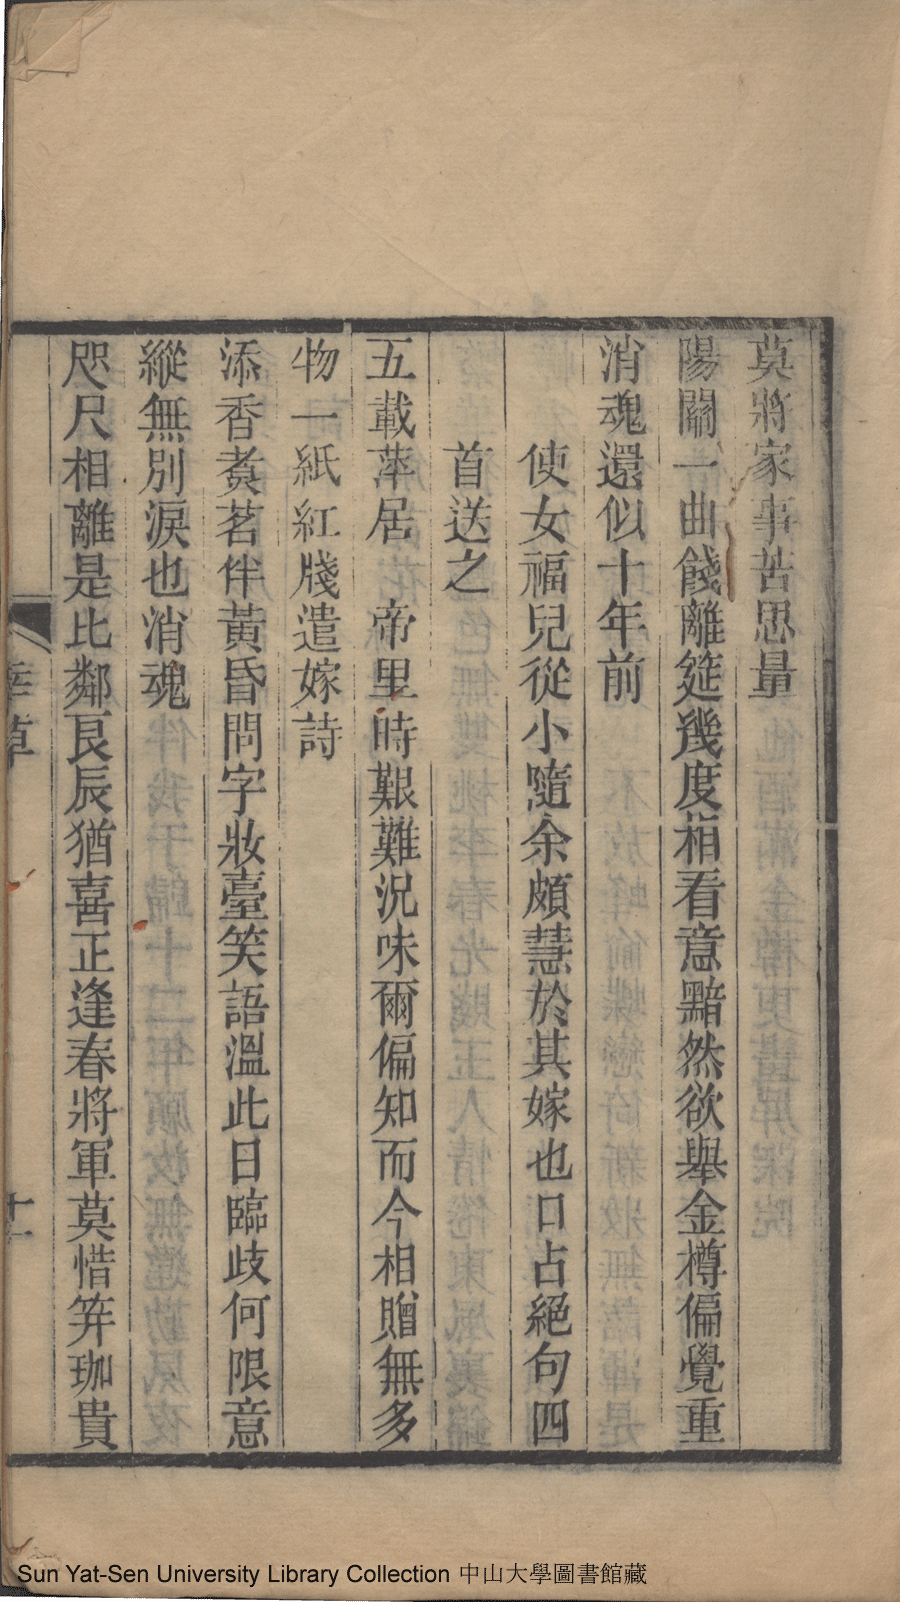 莫將家事苦思量
陽關一曲餞離筵幾度相看意黯然欲舉金樽偏覺重
消魂還似十年前
使女福兒從小隨余頗慧於其嫁也口占絕句四
首送之
五載萍居　帝里時艱難況味爾偏知而今相贈無多
物一紙紅牋遣嫁詩
添香煑茗伴黃昏問字妝臺笑語溫此日臨歧何限意
縱無別淚也消魂
咫尺相離是比鄰良辰猶喜正逢春將軍莫惜笄珈貴
草
十一
Sun Yat-Sen University Library Collection 中山大學圖書館藏